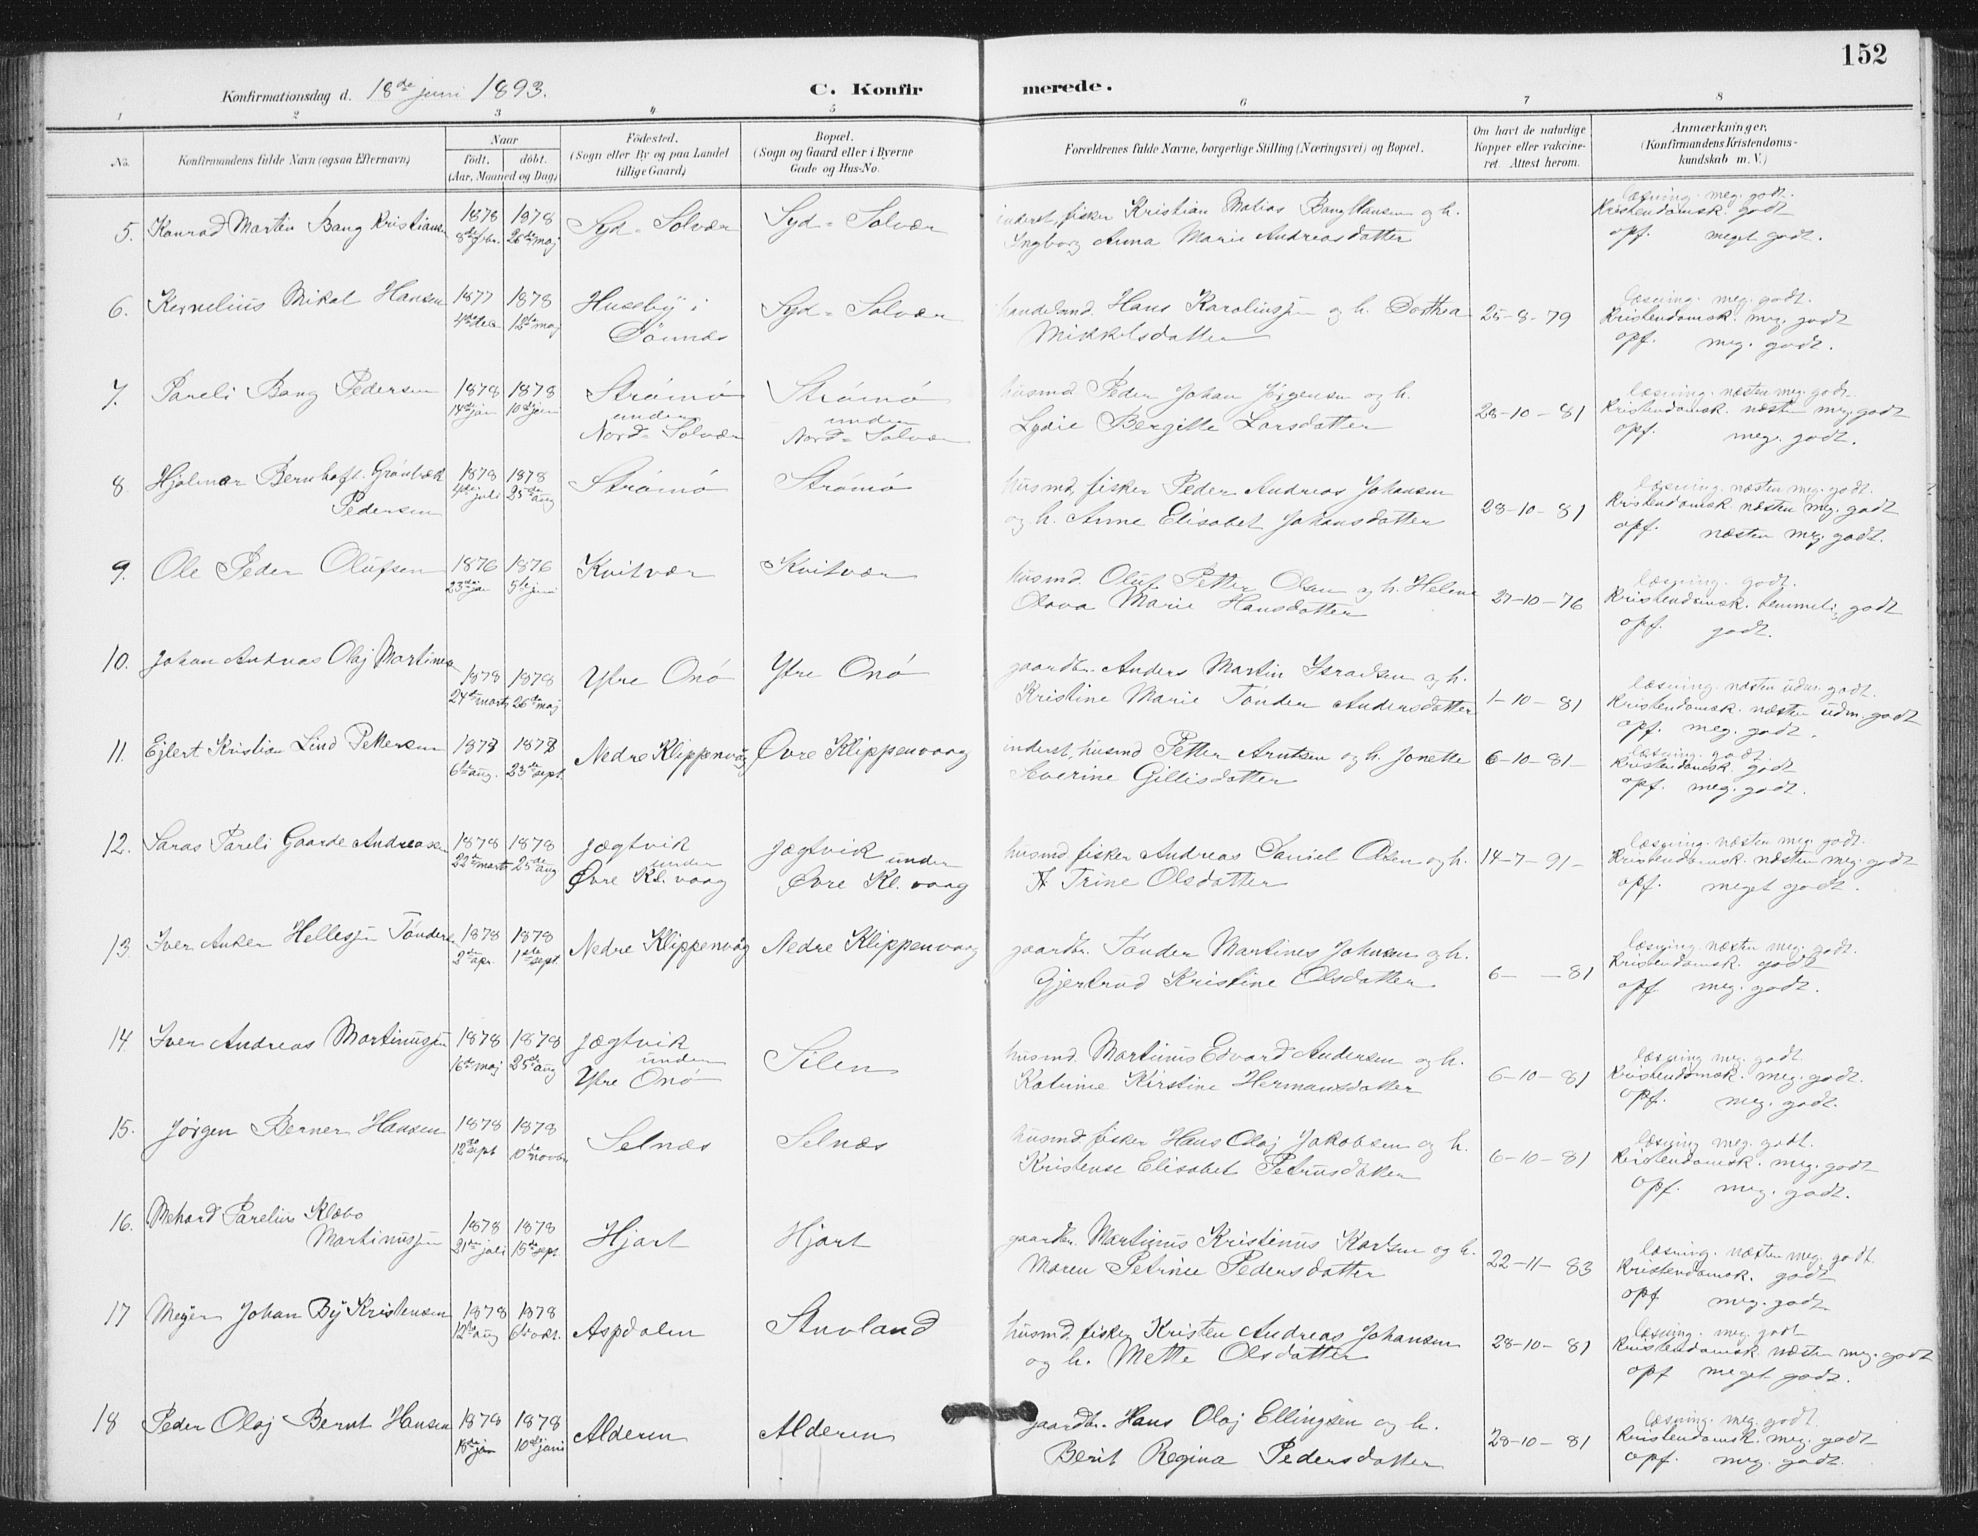 152
Konfirmationsdag d. 18de juni 1893. C. Konfir merede.
1 2 3 4 5 6 7 8
No. Konfirmandens fulde Navn (ogsaa Efternavn) Naar født. døbt. (Aar, Maaned og Dag) Fødested. (Sogn eller By og paa Landet tillige Gaard) Bopæl. (Sogn og Gaard eller i Byerne Gade og Hus-No. Forældrenes fulde Navne, borgerlige Stilling (Næringsvei) og Bopæl. Om havt de naturlige Kopper eller vakcineret. Attest herom. Anmærkninger. (Konfirmandens Kristendomskundskab m. V.)
5. Konrad Martin Bang Kristiansen 1878 8de fbr. 1878 26de maj Syd-Solvær Syd-Solvær inderst, fisker Kristian Matias Bang Hansen og h.
Ingborg Anna Marie Andreasdatter
læsning. meg. godt.
Kristendomsk. godt
opf. meget godt.
6. Kornelius Mikal Hansen 1877 4de dec 1878 12te maj Husby i Dønnæs Syd-Solvær handelsmd. Hans Karoliusen og h. Dorthea
Mikkelsdatter 25-8-79
læsning. meg. godt.
Kristendomsk. meg. godt
opf. meg. godt.
7. Pareli Bang Pedersen 1878 14de jan 1878 10de juni Strømø under Nord-Solvær Strømø under Nord-Solvær husmd. Peder Johan Jörgensen og h.
Lydie Bergitte Larsdatter 28-10-81
læsning. næsten meg. godt.
Kristendomsk. næsten meg. godt
opf. meg. godt.
8. Hjalmar Bernhoft Grønbæk
Pedersen 1878 juli 1878 25de aug Strømø Strømø husmd, fisker Peder Andreas Johansen
og h. Anne Elisabet Johansdatter 28-10-81
læsning. næsten meg. godt.
Kristendomsk. næsten meg. godt
opf. næsten meg godt.
9. Ole Peder Olufsen 1876 23de jan 1876 5te juni Kvitvær Kvitvær husmd. Oluf Petter Olsen og h. Helene
Olava Marie Hansdatter 27-10-76
læsning. godt.
Kristendomsk. temmeli. godt
opf. godt.
10. Johan Andreas Olaj Martines 1878 24de marts 1878 26de maj Ytre Onø Ytre Onø gaardbr. Anders Martin Israelsen og h.
Kristine Marie Tønder Andersdatter 1-10-81
læsning. næsten udm. godt.
Kristendomsk. næsten udm. godt
opf. meg. godt.
11. Ejlert Kristian Lind Pettersen 1877 6te aug. 1877 23de sept. Nedre Klippenvåg Øvre Klippenvaag inderst, husmd Petter Arntsen og h. Jonette
Severine Gillisdatter 6-10-81-
læsning. godt
Kristendomsk. godt
opf. meg. godt.
12. Saras Pareli Gaarde Andreassen 1878 22de marts 1878 25de aug Jægtvik under Øvre Kl. vaag Jægtvik under Øvre Kl. vaag husmd, fisker Andreas Daniel Olsen og h.
A Trine Olsdatter 14-7-91-
læsning. næsten meg. godt.
Kristendomsk. næsten meg. godt
opf. meget godt.
13. Iver Anker Hellesen Tønders 1878 2den apr. 1878 1ste sept. Nedre Klippenvåg Nedre Klippenvaag gaardbr. Tønder Martines Johnsen og h.
Gjertrud Kristine Olsdatter 6- -81
læsning. næsten meg. godt.
Kristendomsk. godt
opf meg. godt.
14 Iver Andreas Martinussen 1878 16de maj 1878 25de aug Jægtvik under Ytre Onø Silen husmd. Martinus Edvard Andersen og h.
Katrine Kirstine Hermansdatter 6-10-81
læsning meg. godt.
Kristendomsk. meg. godt.
opf. meg. godt.
15. Jørgen Berner Hansen 1878 12te sept 1878 10de novbr Selnæs Selnæs husmd, fisker Hans Olaj Jakobsen og h.
Kristense Elisabet Petrusdatter 6-10-81
læsning meg. godt.
Kristendomsk. meg. godt
opf. meg. godt.
16. Mehard Parelius Klæbo
Martinussen 1878 21de juli 1878 15de sept. Hjart Hjart gaardbr. Martinus Kristinus Karlsen og h.
Maren Petrine Pedersdatter 22-11-83
læsning. næsten meg. godt.
Kristendomsk. godt
opf meg. godt.
17 Mejer Johan By Kristensen 1878 12te aug 1878 6te okt. Aspdalen Stuvland husmd, fisker Kristen Andreas Johansen
og h. Mette Olsdatter 28-10-81
læsning. meg. godt
Kristendomsk. næsten meg. godt
opf meget godt.
18 Peder Olaj Bernt Hansen 1878 18de jan 1878 10de juni Alderen Alderen gaardbr. Hans Olaj Ellingsen og h.
Berit Regina Pedersdatter 28-10-81
læsning. meg. godt.
Kristendomsk. meg. godt
opf. meg. godt.